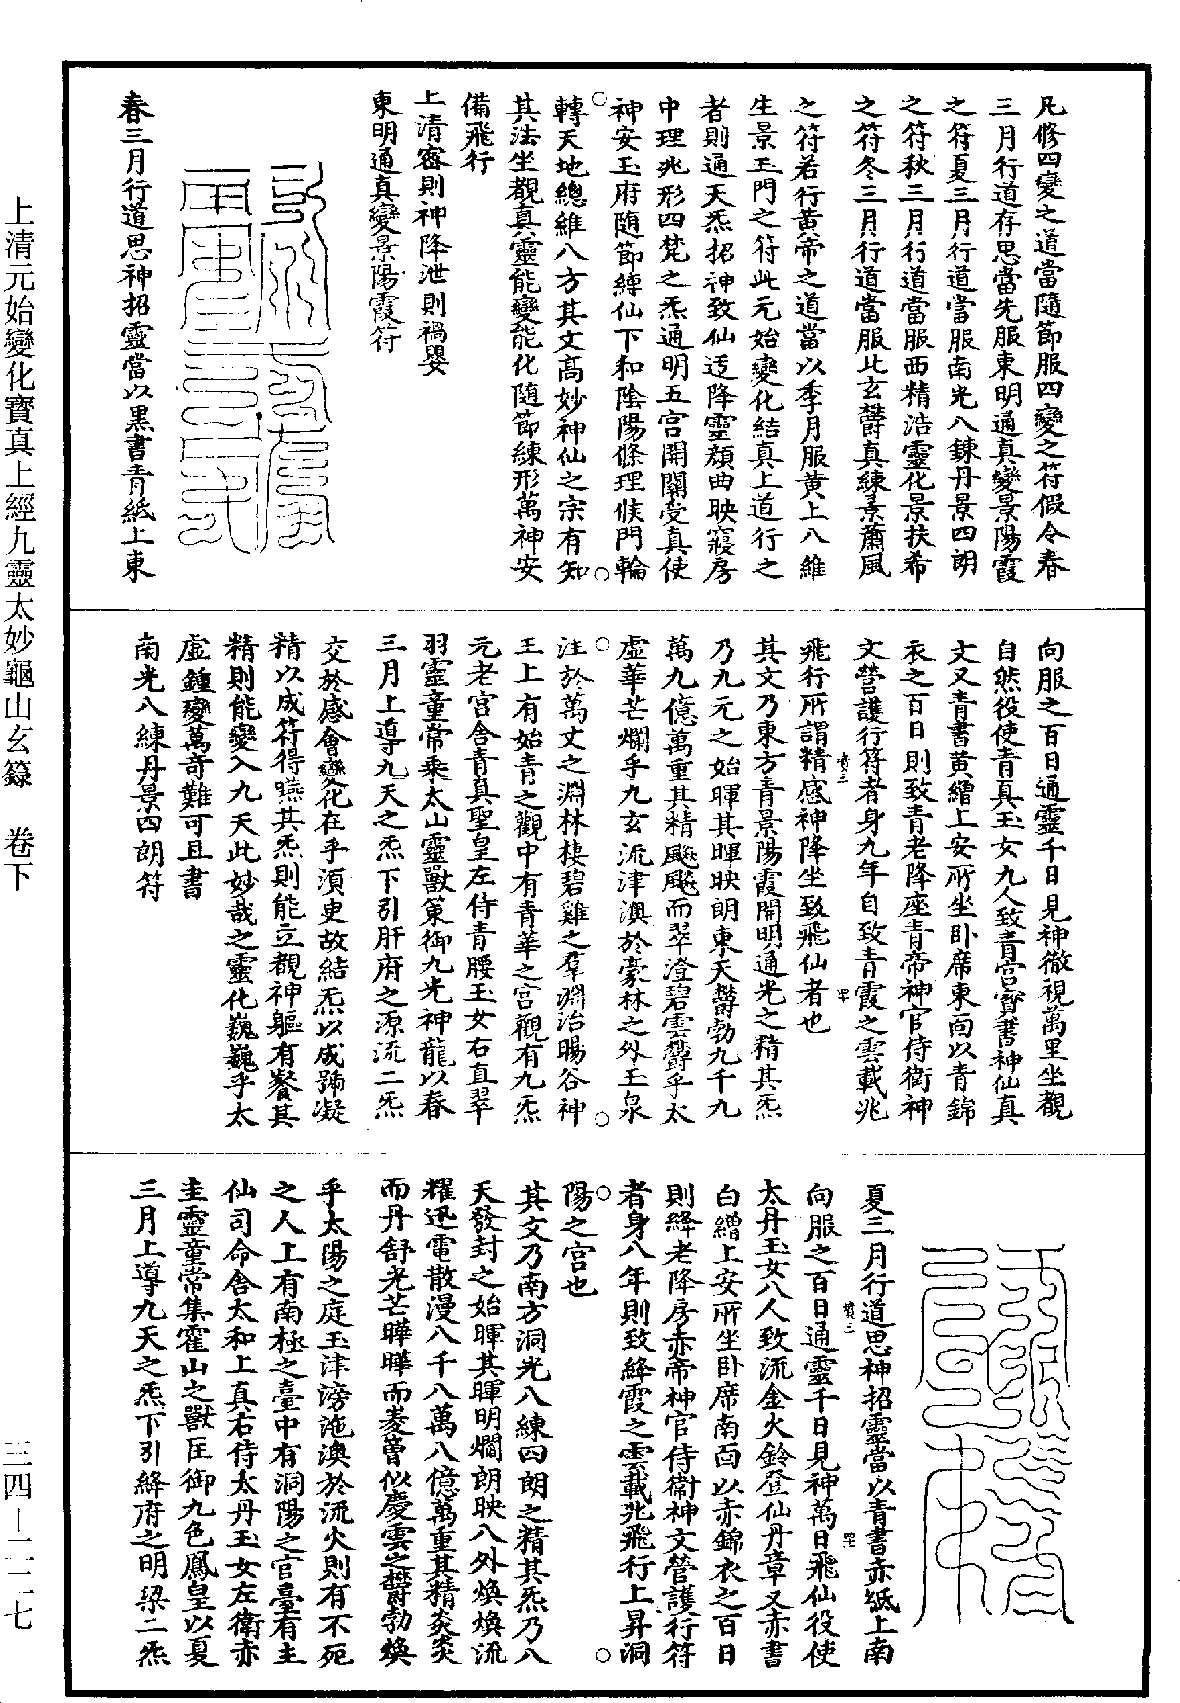 凡修四變之道當隨節服四變之符假令春
三月行道存思當先服東明通真變景陽霞
之符夏三月行道當服南光八鍊丹景四朗
之符秋三月行道當服西精浩靈化景扶希
之符冬三月行道當服此玄欝真練景蕭風
之符若行黃帝之道當以季月服黃上八維
生景玉門之符此元始變化結真上道行之
者則通天炁招神致仙迃降靈顏曲映寢房
中理兆形四梵之炁通明五宮開闢受真使
神安玉府隨節縴仙下和陰陽條理候門輪
轉天地總維八方其文高妙神仙之宗有知
其法坐觀真靈能變能化隨節練形萬神安
備飛行
上清密則神降泄則禍嬰
東明通真變景陽霞符
春三月行道思神招靈當以黑書青紙上東
向服之百日通靈千日見神徹視萬里坐觀
自然役使青真玉女九人致青宮寶書神仙真
文又青書黃繒上安所坐卧席東面以青錦
衣之百日則致青老降座青帝神官侍衛神
文營護行符者身九年自致青霞之雲載兆
飛行所謂精感神降坐致飛仙者也
其文乃東方青景陽霞開明通光之精其炁
乃九元之始暉其暉映朗東天欝勃九千九
萬九億萬重其精飈飈而翠澄碧雲欝乎太
虛華芒爛乎九玄流津澳於豪林之外玉泉
注於萬丈之淵林棲碧雞之羣淵治暘谷神
王上有始青之觀中有青華之宮觀有九炁
元老宮含青真聖皇左侍青腰玉女右直翠
羽靈童常乘太山靈獸策御九光神龍以春
三月上導九天之炁下引肝府之源流二炁
交於感會變化在乎須臾故結炁以成號凝
精以成符得嚥其炁則能立覩神軀有餐其
精則能變入九天此妙哉之靈化巍巍乎太
虛鍾變萬奇難可且書
南光八練丹景四朗符
夏三月行道思神招靈當以青書赤紙上南
向服之百日通靈千日見神萬日飛仙役使
太丹玉女八人致流金火鈴登仙丹章又赤書
白繒上安所坐卧席南面以赤錦衣之百日
則絳老降房赤帝神官侍衛神文營護行符
者身八年則致絳霞之雲載兆飛行上昇洞
陽之宮也
其文乃南方洞光八練四朗之精其炁乃八
天發封之始暉其暉明爓朗映八外煥煥流
耀迅電散漫八千八萬八億萬重其精炎炎
而丹舒光芒曄曄而蔆蕾似慶雲之欝勃煥
乎太陽之庭玉津滂沲澳於流火則有不死
之人上有南極之臺中有洞陽之官臺有主
仙司命含太和上真右侍太丹玉女左衛赤
圭靈童常集霍山之獸匡御九色鳳皇以夏
三月上導九天之炁下引絳府之明梁二炁
上清元始變化寶真上經九靈太妙龜山玄籙　卷下
三四－二一七